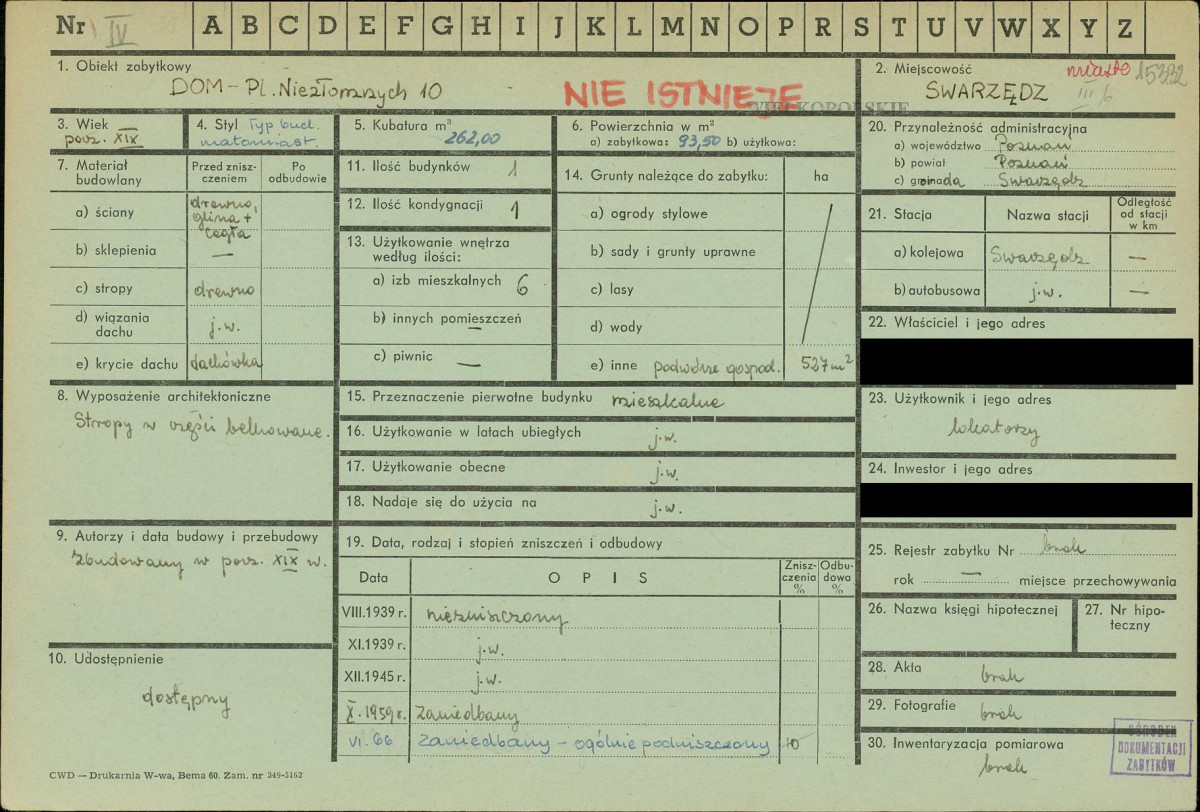 Nr IV A B C D E F G H I J K L M N O P R S T U V W X Y Z
1. Obiekt zabytkowy
DOM - Pl. Niezłomnych 10
NIE ISTNIEJE
WIELKOPOLSKIE
2. Miejscowość
miasto 15332
III 6
SWARZĘDZ
3. Wiek
pocz. XIX
4. Styl Typ bud.
małomiast.
5. Kubatura m³
262,00
6. Powierzchnia w m²
a) zabytkowa: 93,50 b) użytkowa:
7. Materiał budowlany
Przed zniszczeniem
Po odbudowie
a) ściany drewno, glina + cegła
b) sklepienia —
c) stropy drewno
d) wiązania dachu j.w.
e) krycie dachu dachówka
8. Wyposażenie architektoniczne
Stropy w części belkowane.
9. Autorzy i data budowy i przebudowy
Zbudowany w pocz. XIX w.
10. Udostępnienie
dostępny
11. Ilość budynków 1
12. Ilość kondygnacji 1
13. Użytkowanie wnętrza
według ilości:
a) izb mieszkalnych 6
b) innych pomieszczeń —
c) piwnic —
14. Grunty należące do zabytku: ha
a) ogrody stylowe
b) sady i grunty uprawne
c) lasy
d) wody
e) inne podwórze gospod. 527 m²
15. Przeznaczenie pierwotne budynku mieszkalne
16. Użytkowanie w latach ubiegłych j.w.
17. Użytkowanie obecne j.w.
18. Nadaje się do użycia na j.w.
19. Data, rodzaj i stopień zniszczeń i odbudowy
Data OPIS Zniszczenia % Odbudowa %
VIII.1939 r. niezniszczony
XI.1939 r. j.w.
XII.1945 r. j.w.
X.1959 r. Zaniedbany
VI. 66 Zaniedbany - ogólnie podniszczony 10
20. Przynależność administracyjna
a) województwo Poznań
b) powiat Poznań
c) gromada Swarzędz
21. Stacja Nazwa stacji Odległość od stacji w km
a) kolejowa Swarzędz —
b) autobusowa j.w. —
22. Właściciel i jego adres
23. Użytkownik i jego adres
lokatorzy
24. Inwestor i jego adres
25. Rejestr zabytku Nr brak
rok — miejsce przechowywania
26. Nazwa księgi hipotecznej
27. Nr hipoteczny
28. Akta brak
29. Fotografie brak
30. Inwentaryzacja pomiarowa
brak
OŚRODEK
DOKUMENTACJI
ZABYTKÓW
CWD — Drukarnia W-wa, Bema 60. Zam. nr 349-5162